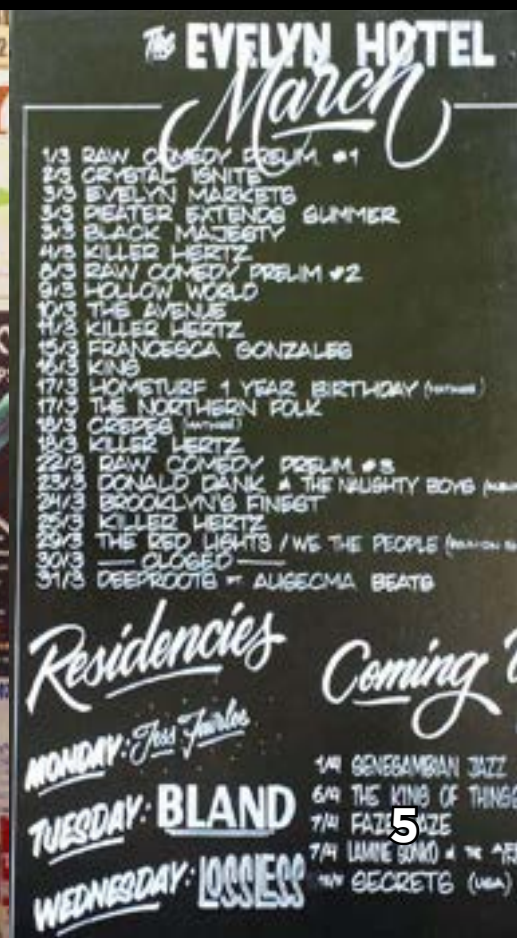 The EVELYN HOTEL
March
1/3 RAW COMEDY PRELIM. #1
2/3 CRYSTAL IGNITE
3/3 EVELYN MARKETS
3/3 PIEATER EXTENDS SUMMER
3/3 BLACK MAJESTY
4/3 KILLER HERTZ
8/3 RAW COMEDY PRELIM #2
9/3 HOLLOW WORLD
10/3 THE AVENUE
11/3 KILLER HERTZ
15/3 FRANCESCA GONZALES
16/3 KING
17/3 HOMETURF 1 YEAR BIRTHDAY (MATINEE)
17/3 THE NORTHERN FOLK
18/3 CREPES (MATINEE)
18/3 KILLER HERTZ
22/3 RAW COMEDY PRELIM. #3
23/3 DONALD DANK & THE NAUGHTY BOYS
24/3 BROOKLYN'S FINEST
25/3 KILLER HERTZ
29/3 THE RED LIGHTS / WE THE PEOPLE
30/3 — CLOSED —
31/3 DEEPROOTS FT AUSECMA BEATS
Residencies
Coming
MONDAY: Jess Fairlie
TUESDAY: BLAND
WEDNESDAY: LOSSLESS
1/4 SENEGAMBIAN JAZZ
6/4 THE KING OF THINGS
7/4
5
7/4 LAMINE SONKO & THE
SECRETS (USA)